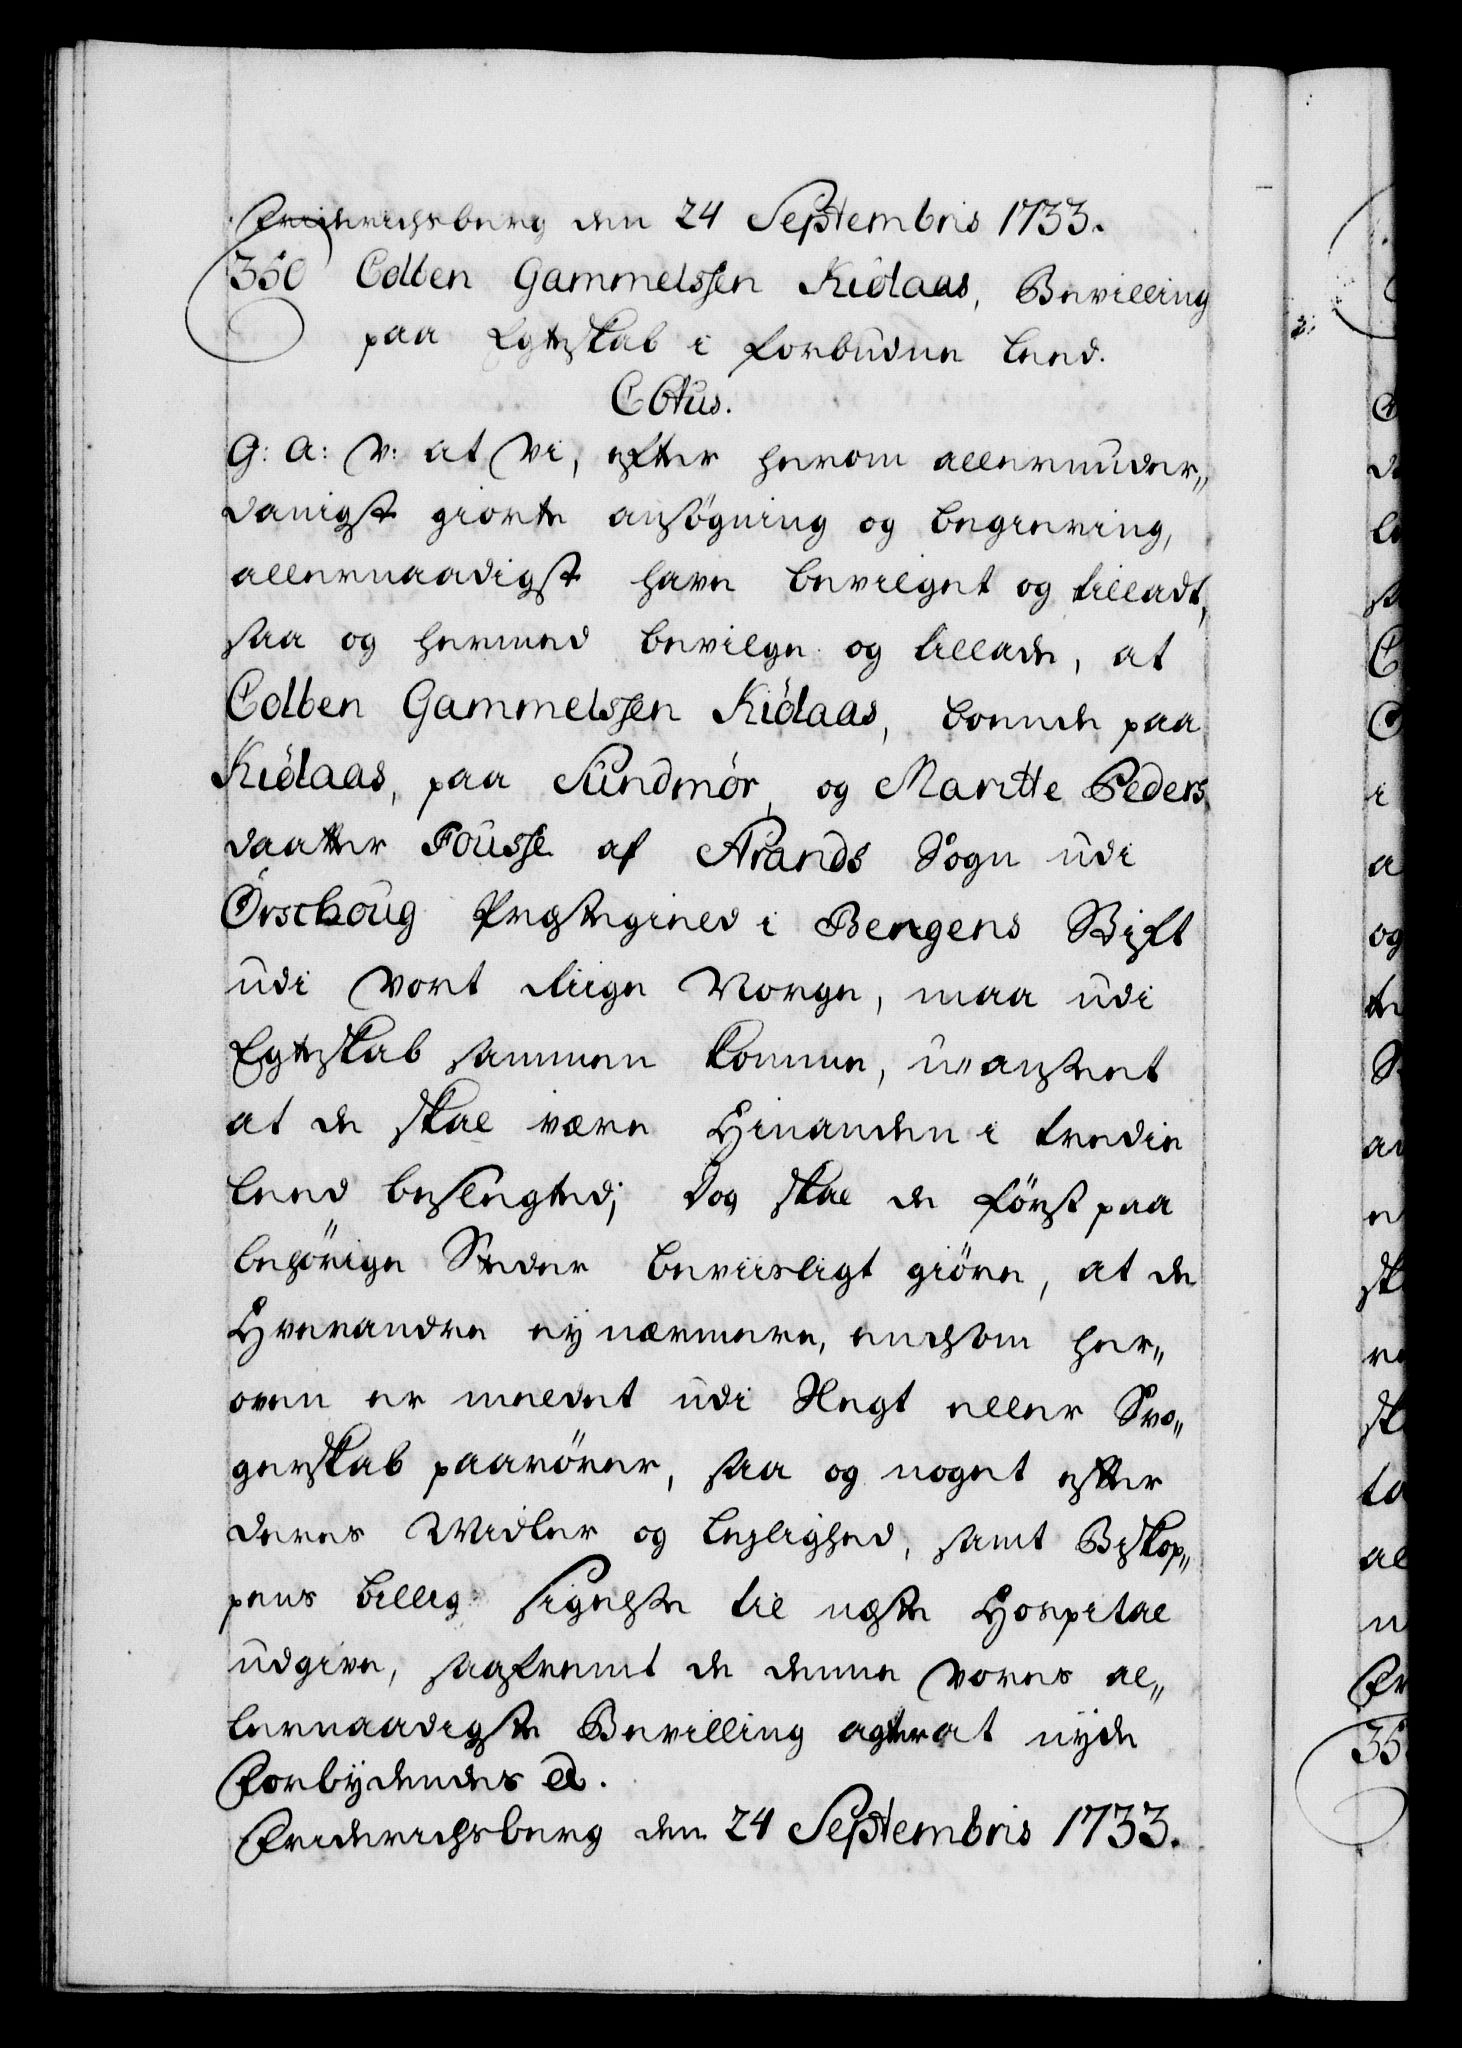 Friderichsberg den 24 Septembris 1733.
350 Colben Gammelssen Kiölaas, Bevilling
paa Egteskab i forbudne Leed.
C6tus.
G: A: V: at Vi, efter herom allerunder„
danigst giorte ansögning og begiering,
allernaadigst have bevilget og tilladt,
saa og hermed bevilge og tillade, at
Colben Gammelssen Kiölaas, boende paa
Kiölaas, paa Sundmör, og Maritte Peders
daatter Fousse af Strands Sogn udi
Örschoug Præstegield i Bergens Stift
udi vort Riige Norge, maa udi
Egteskab sammen komme, u„anseet
at de skal være Hinanden i tredie
Leed beslengted; Dog skal de först paa
behörige Steder beviisligt giöre, at de
Hverandre ej nærmere, end som her„
oven er meldet udi Slegt eller Svo„
gerskab paarörer, saa og noget efter
deres Midler og Lejlighed, samt Biskop„
pens billig sigelse til næste Hospital
udgive, saafremt de denne vores al„
lernaadigste Bevilling agter at nyde
Forbydendes &.
Friderichsberg den 24 Septembris 1733.